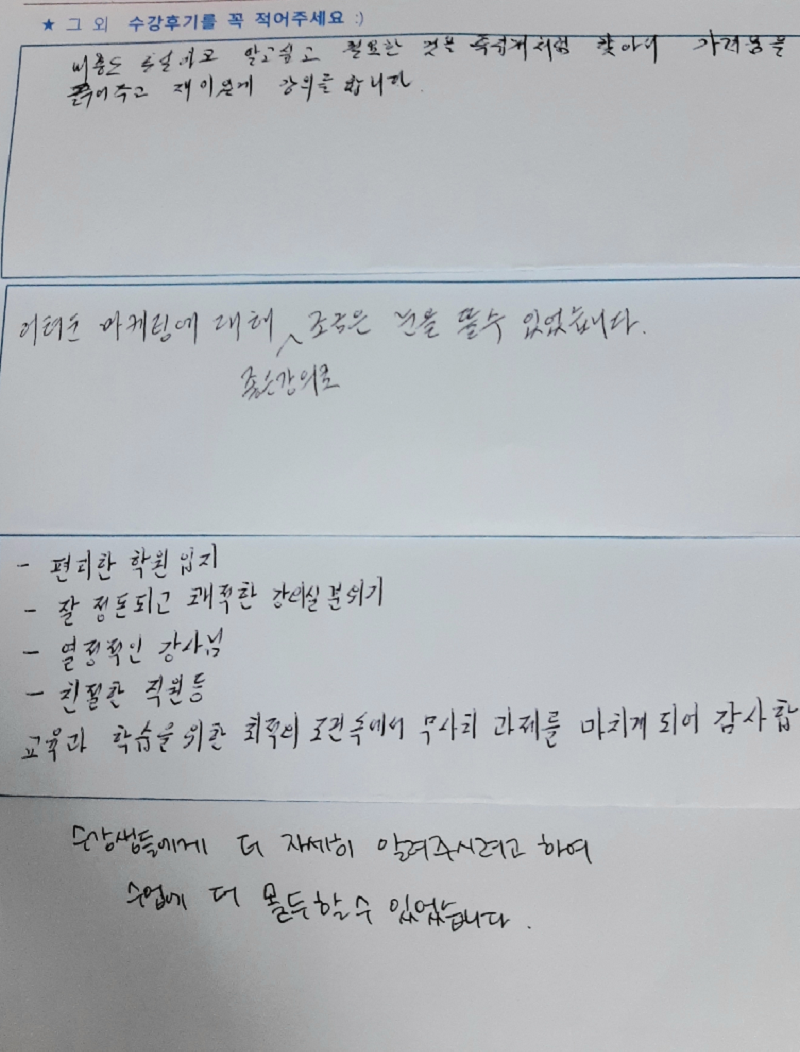 ★ 그 외 수강후기를 꼭 적어주세요 :)
알고싶고 필요한 것을 족집게처럼 찾아서 가려움을
긁어주고 재미있게 강의를 합니다.
어려운 마케팅에 대해 조금은 눈을 뜰수 있었습니다.
좋은강의로
- 편리한 학원 입지
- 잘 정돈되고 쾌적한 강의실 분위기
- 열정적인 강사님
- 친절한 직원 등
교육과 학습을 위한 최적의 조건 속에서 무사히 과제를 마치게 되어 감사합
수강생들에게 더 자세히 알려주시려고 하여
수업에 더 몰두할 수 있었습니다.